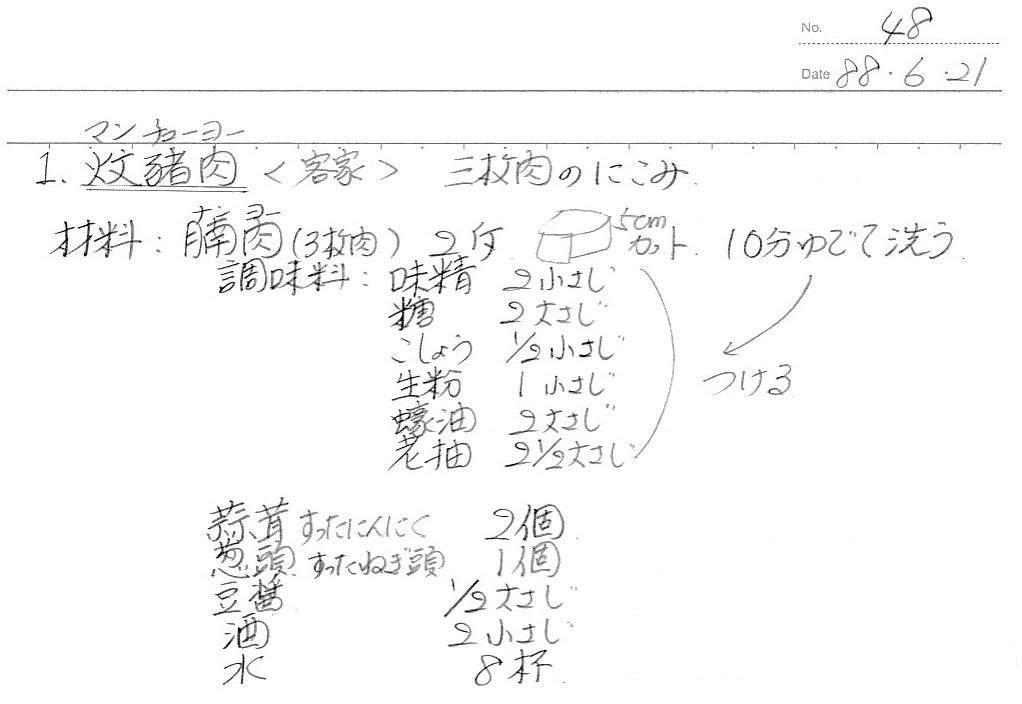 No. 48
Date 88・6・21
マンチューヨー
1. 炆豬肉 <客家> 三枚肉のにこみ.
ナンヨー
材料: 腩肉 (3枚肉) 2斤 5cm カット. 10分ゆでて洗う
調味料: 味精 2小さじ
糖 2大さじ
こしょう 1/2小さじ
生粉 1小さじ つける
蠔油 2大さじ
老抽 2 1/2大さじ
蒜茸 すったにんにく 2個
葱頭 すったねぎ頭 1個
豆醤 1/2大さじ
酒 2小さじ
水 8杯